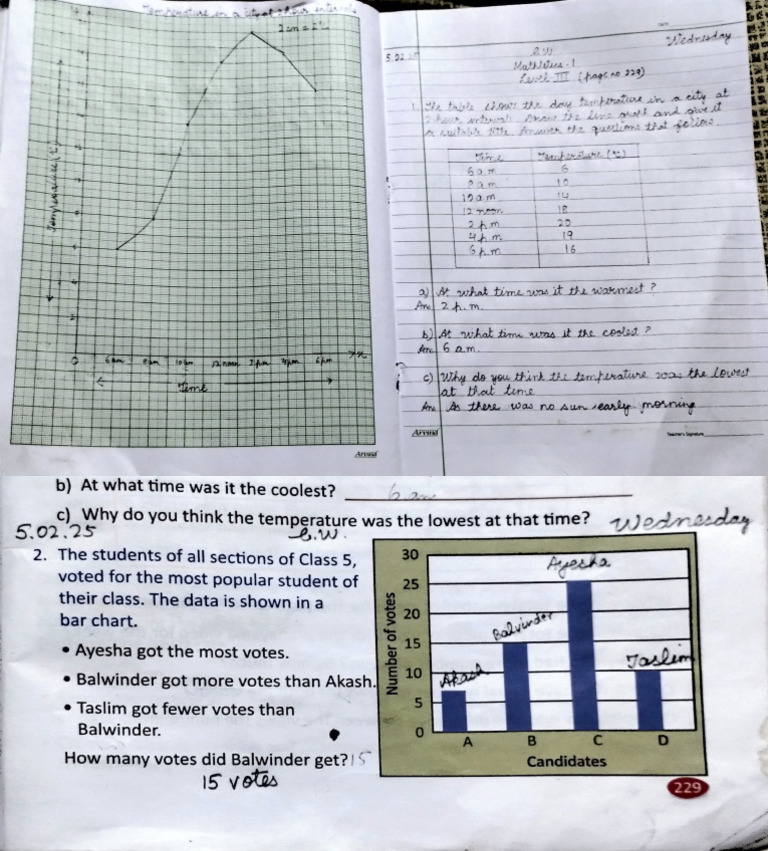 Temperature in a city at 2 hour intervals
1 cm = 2°C
Temperature (°C)
4
2
0
6 am 8 am 10 am 12 noon 2 pm 4 pm 6 pm
Time
Arvind
Wednesday
5.02.25
C.W
Level III (page no 229)
1. The table shows the day temperature in a city at
2 hour intervals. Draw the line graph and give it
a suitable title. Answer the questions that follow.
Time Temperature (°C)
6 a.m 6
8 a.m 10
10 a.m 14
12 noon 18
2 p.m 20
4 p.m 19
6 p.m 16
a) At what time was it the warmest?
Ans 2 p.m.
b) At what time was it the coolest?
Ans 6 a.m.
c) Why do you think the temperature was the lowest
at that time
Ans As there was no sun early morning
Arvind
Teacher's Signature
b) At what time was it the coolest? 6 am
c) Why do you think the temperature was the lowest at that time?
Wednesday
5.02.25
C.W.
2. The students of all sections of Class 5,
voted for the most popular student of
their class. The data is shown in a
bar chart.
• Ayesha got the most votes.
• Balwinder got more votes than Akash.
• Taslim got fewer votes than
Balwinder.
How many votes did Balwinder get? 15
15 votes
Number of votes
30
25
20
15
10
5
0
Akash
Balvinder
Ayesha
Taslim
A B C D
Candidates
229